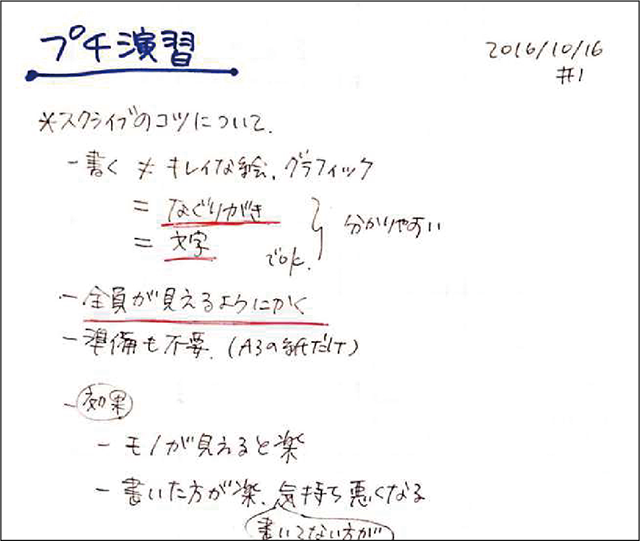 プチ演習
2016/10/16
#1
*スクライブのコツについて.
- 書く ≠ キレイな絵、グラフィック
= なぐりがき
= 文字
でok.
分かりやすい
- 全員が見えるようにかく
- 準備も不要. (A3の紙だけ)
- 効果
- モノが見えると楽
- 書いた方が楽、気持ち悪くなる
書いてない方が